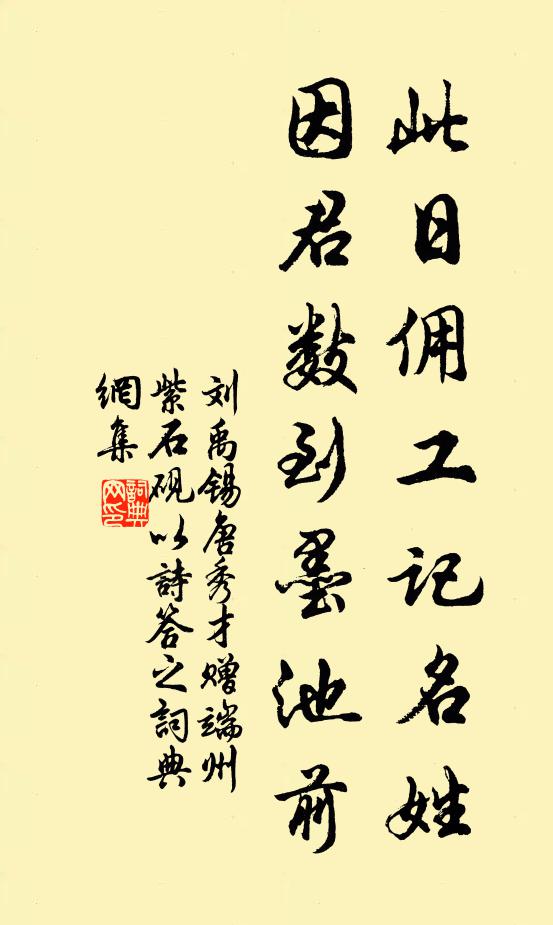 此日佣工记名姓
因君数到墨池前
刘禹锡唐秀才赠端州
紫石砚以詩答之詞典
網集
詞典
网印